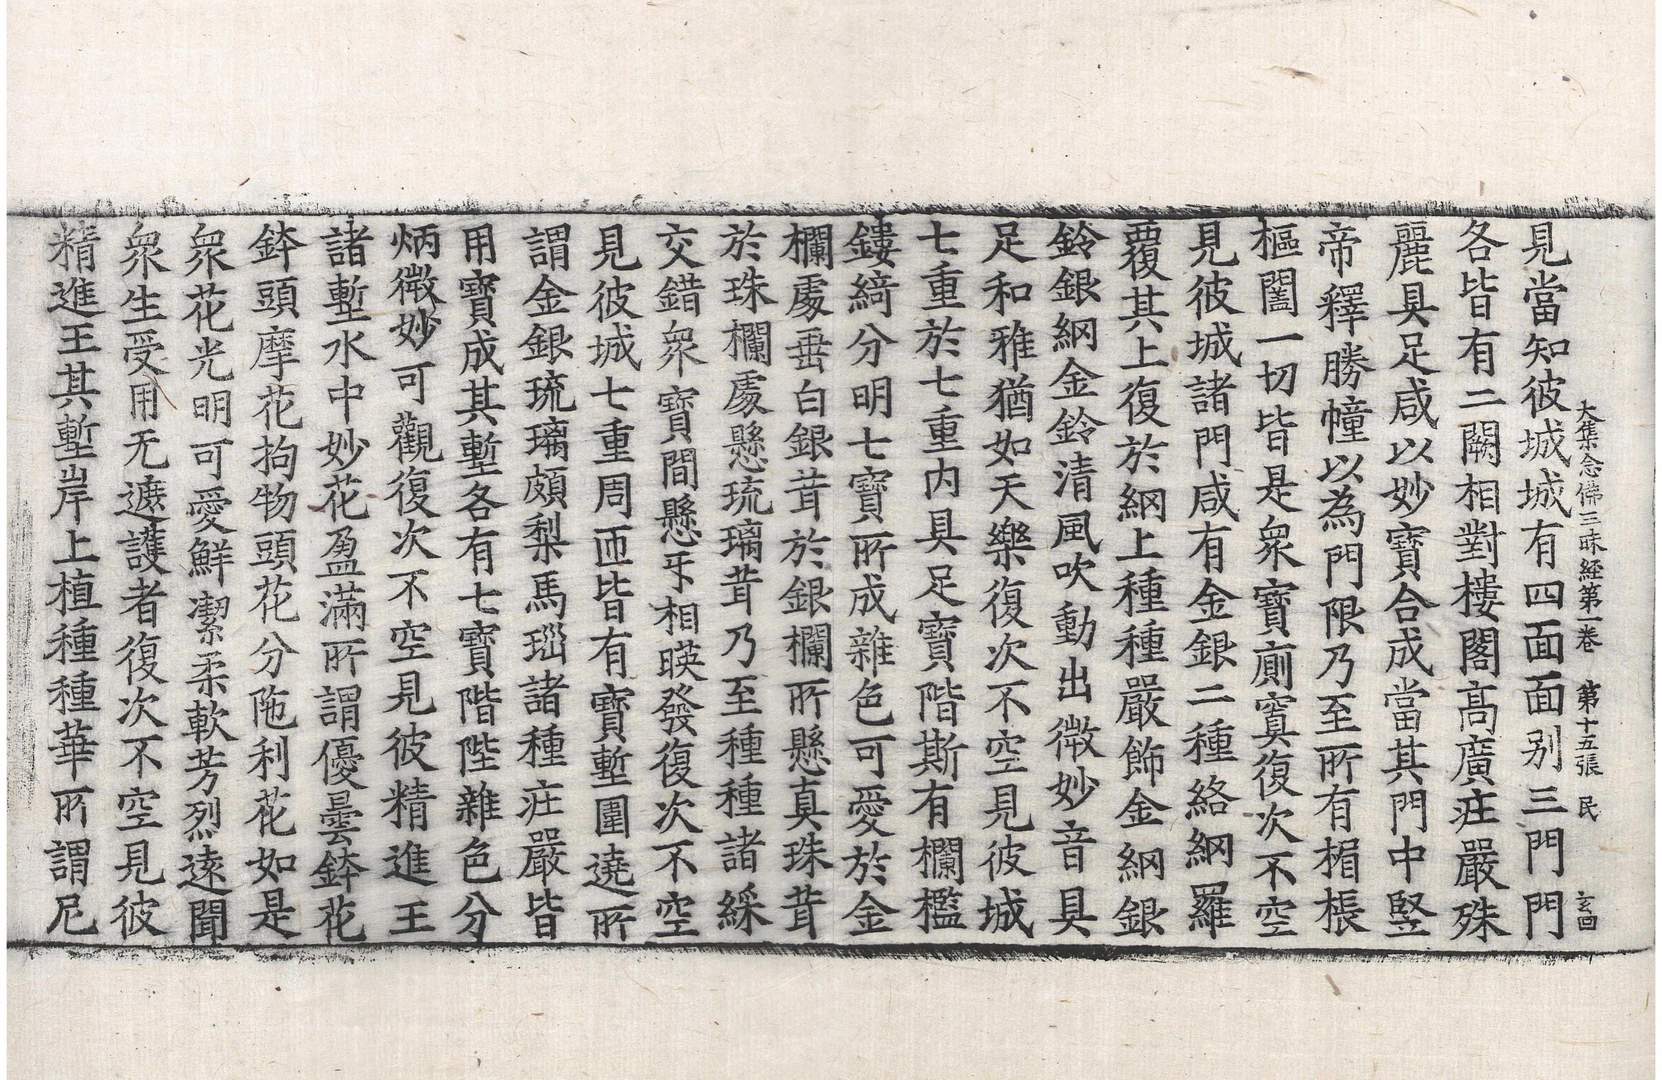 大集念佛三昧經第一卷 第十五張 民 玄四
見當知彼城城有四面面别三門門
各皆有二闕相對樓閣高廣庄嚴殊
麗具足咸以妙寶合成當其門中竪
帝釋勝幢以為門限乃至所有楣棖
樞闔一切皆是衆寶廁窴復次不空
見彼城諸門咸有金銀二種絡網羅
覆其上復於網上種種嚴飾金網銀
鈴銀網金鈴清風吹動出微妙音具
足和雅猶如天樂復次不空見彼城
七重於七重内具足寶階斯有欄檻
鏤綺分明七寶所成雜色可愛於金
欄處垂白銀㫺於銀欄所懸真珠㫺
於珠欄處懸琉璃㫺乃至種種諸綵
交錯衆寶間懸㸦相暎發復次不空
見彼城七重周匝皆有寶塹圍遶所
謂金銀琉璃頗梨馬瑙諸種庄嚴皆
用寶成其塹各有七寶階陛雜色分
炳微妙可觀復次不空見彼精進王
諸塹水中妙花盈滿所謂優曇鉢花
鉢頭摩花拘物頭花分陁利花如是
衆花光明可愛鮮潔柔軟芳烈遠聞
衆生受用无遮護者復次不空見彼
精進王其塹岸上植種種華所謂尼